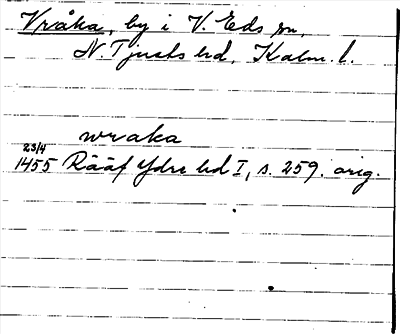 Vråka, by i V. Eds sn,
N. Tjusts hd, Kalm. l.
wraka
23/4
1455 Rääf Ydre hd I, s. 259. orig.